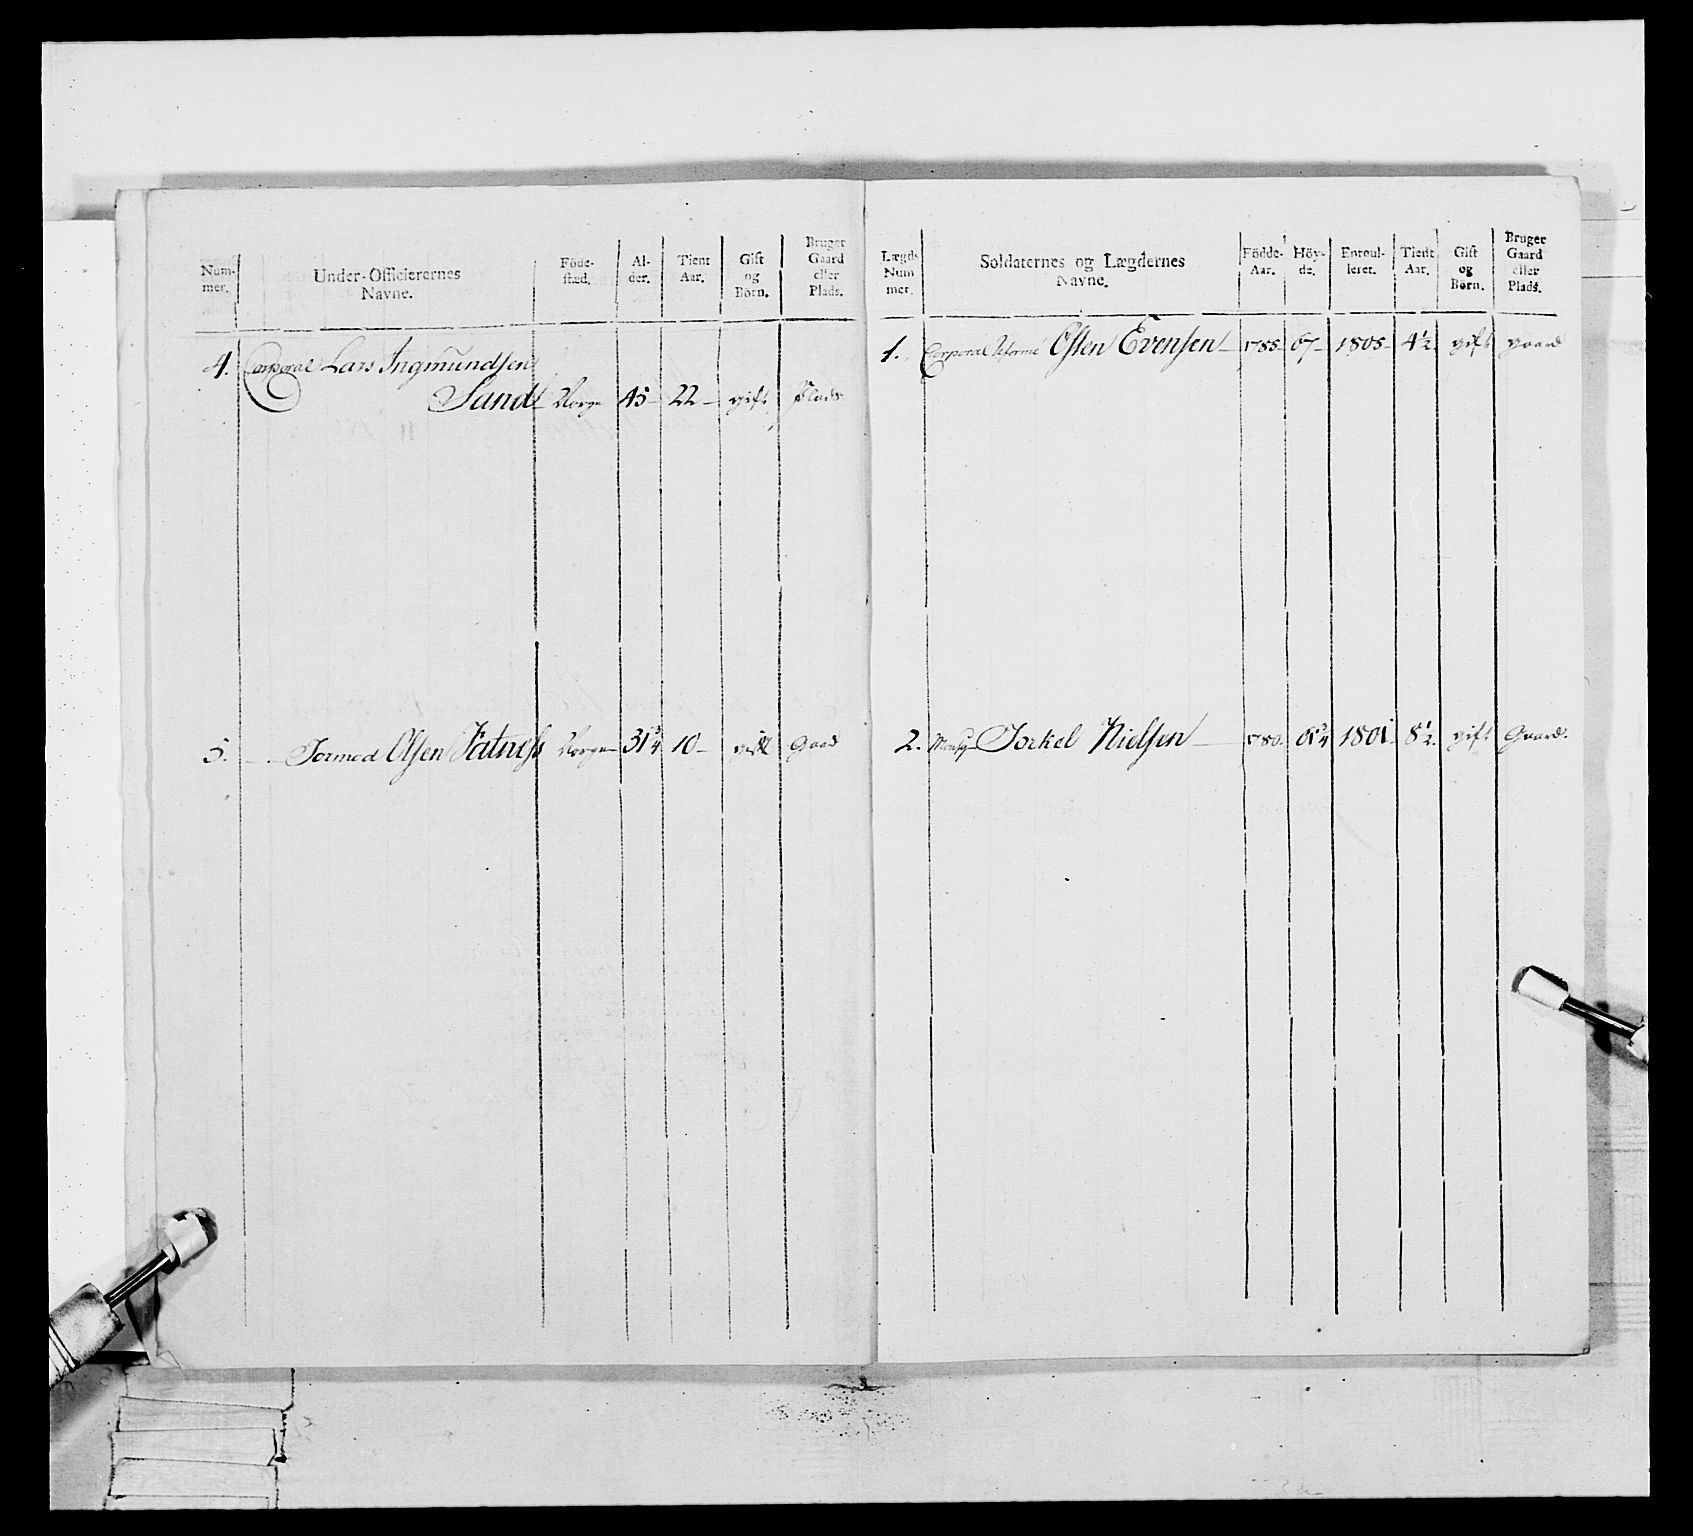 Num- mer. Under-Officierernes Navne. Föde- stæd. Al- der. Tient Aar. Gift og Börn. Bruger Gaard eller Plads.
4. Corporal Lars Ingmundsen
Sand Norge 45 22 gift Plads
5. Tormod Olsen Fatness Norge 31 3/4 10 gift Gaard
Lægds Num mer. Soldaternes og Lægdernes Navne. Födde- Aar. Höy- de. Enroul- leret. Tient Aar. Gift og Børn. Bruger Gaard eller Plads.
1. Corporal Reformé Østen Evensen 1785 67 1805 4 1/2 gift gaard
2. Torkel Nielsen 1780 1801 8 1/2. gift Gaard.